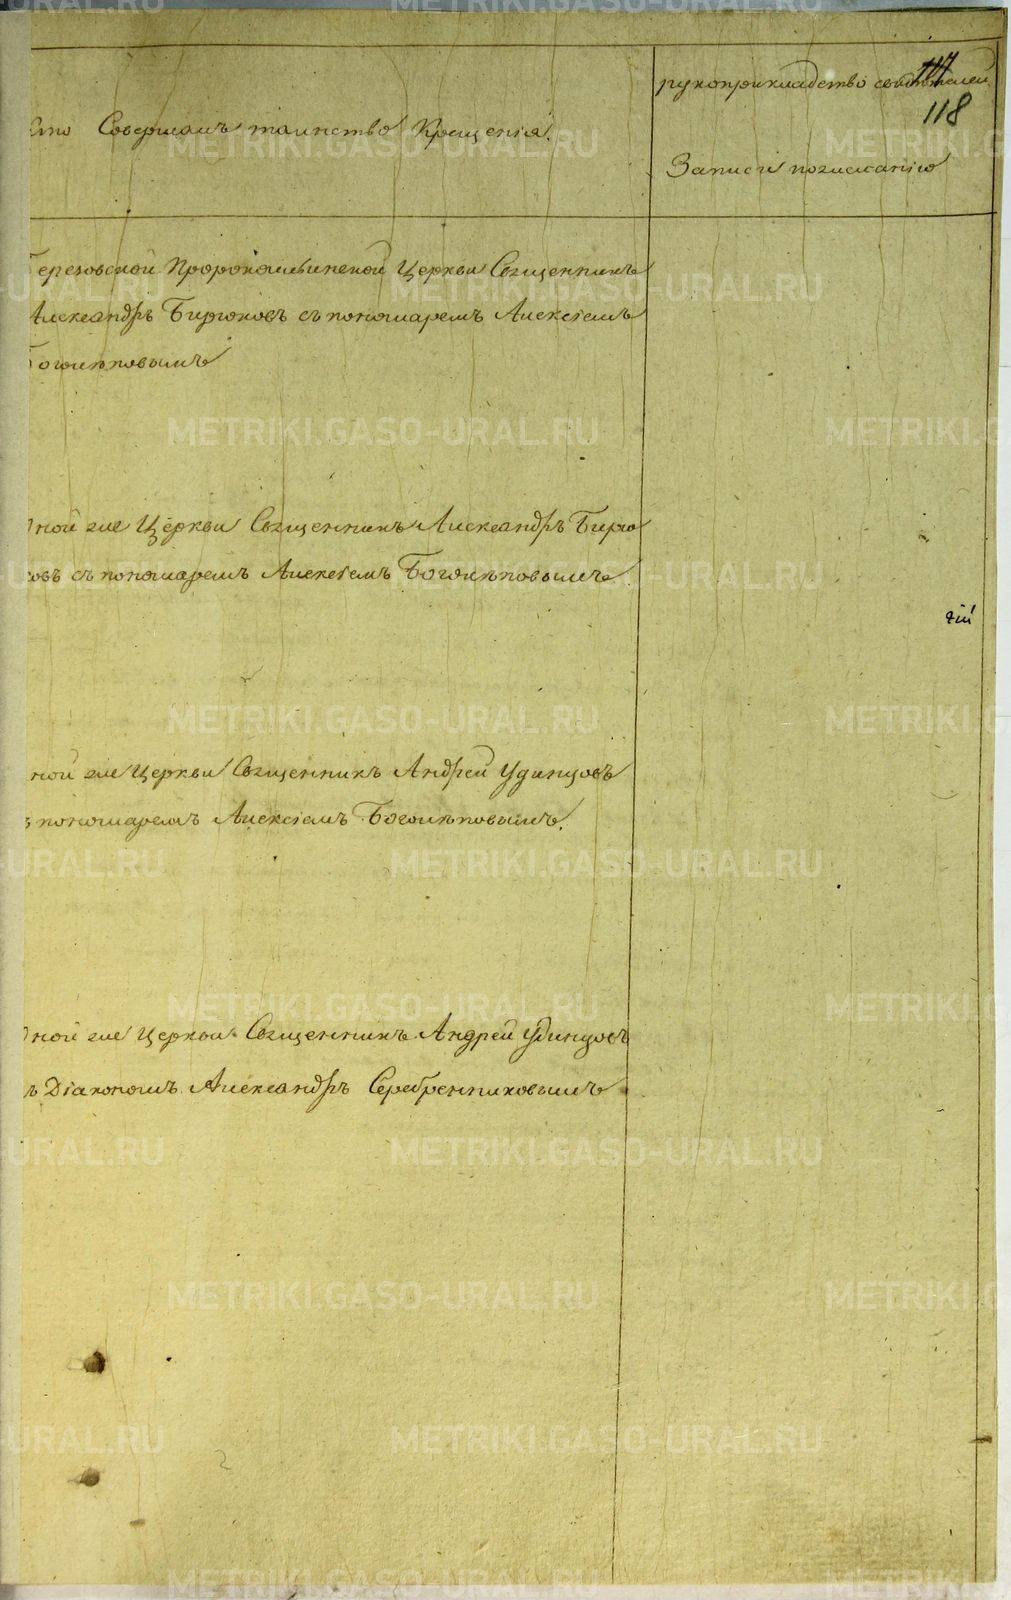 Кто Совершалъ таинство Крещенія.
рукоприкладство свидѣтелей
117
118
Записи по желанію
Березовской Пророкоильинской Церкви Священникъ
Александръ Бирюковъ съ пономаремъ Алексіемъ
Боголѣповымъ
Оной же Церкви Священникъ Александръ Бирю
ковъ съ пономаремъ Алексіемъ Боголѣповымъ.
ной же Церкви Священникъ Андрей Удинцовъ
съ пономаремъ Алексіемъ Боголѣповымъ.
Оной же Церкви Священникъ Андрей Удинцовъ
съ Діакономъ Александръ Серебренниковымъ
METRIKI.GASO-URAL.RU